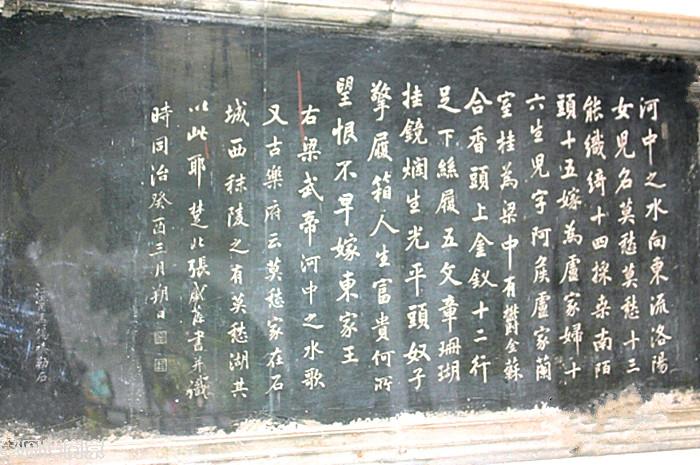 河中之水向東流洛陽
女兒名莫愁莫愁十三
能織綺十四採桑南陌
頭十五嫁為盧家婦十
六生兒字阿侯盧家蘭
室桂為梁中有鬱金蘇
合香頭上金釵十二行
足下絲履五文章珊瑚
挂鏡爛生光平頭奴子
擎履箱人生富貴何所
望恨不早嫁東家王
右梁武帝河中之水歌
又古樂府云莫愁家在石
城西秣陵之有莫愁湖其
以此耶 楚北張書并識
時同治癸酉三月朔日
勒石